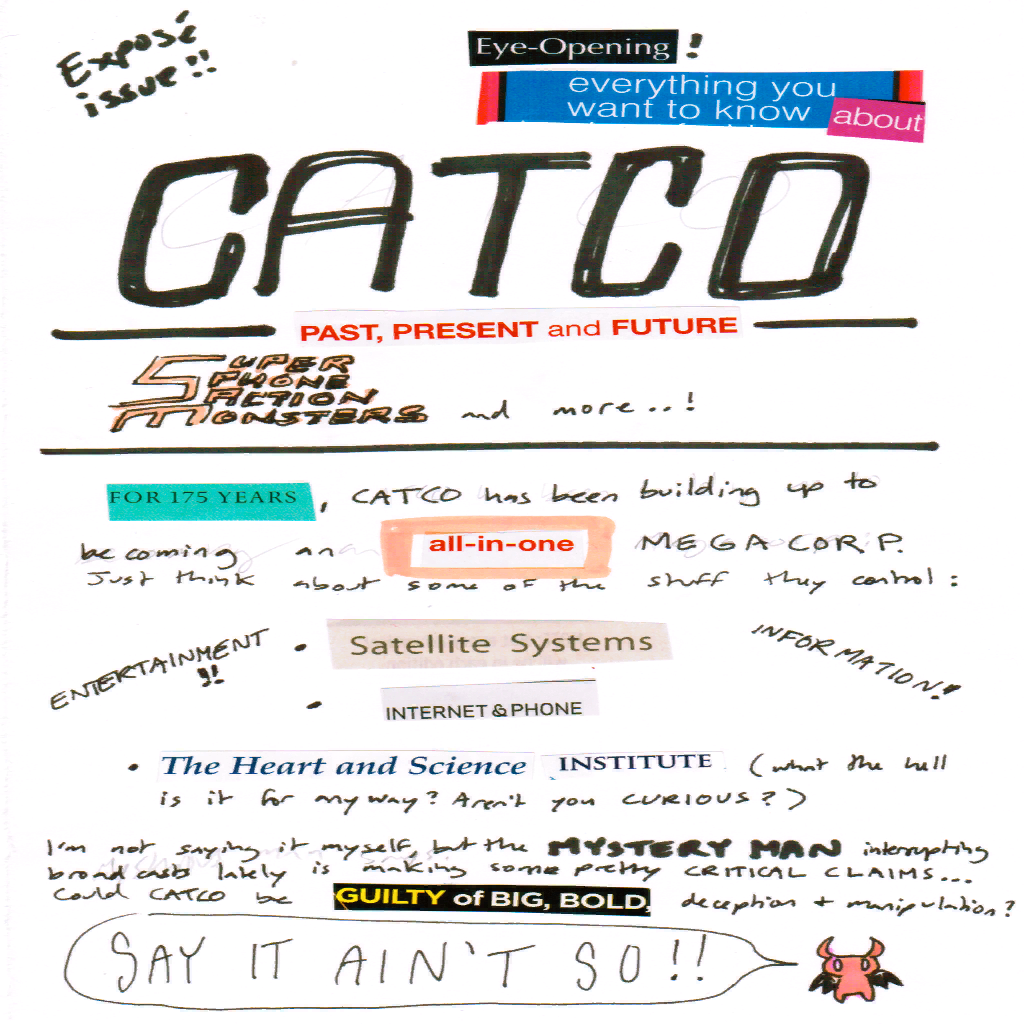 Exposé
issue!!
Eye-Opening!
everything you
want to know about
CATCO
PAST, PRESENT and FUTURE
SUPER
PHONE
ACTION
MONSTERS and more..!
FOR 175 YEARS, CATCO has been building up to
becoming an all-in-one MEGACORP.
Just think about some of the stuff they control:
ENTERTAINMENT
!!
• Satellite Systems
INFORMATION!
• INTERNET & PHONE
• The Heart and Science INSTITUTE (what the hell
is it for anyway? Aren't you CURIOUS?)
I'm not saying it myself, but the MYSTERY MAN interrupting
broadcasts lately is making some pretty CRITICAL CLAIMS...
Could CATCO be GUILTY of BIG, BOLD, deception + manipulation?
SAY IT AIN'T SO!!